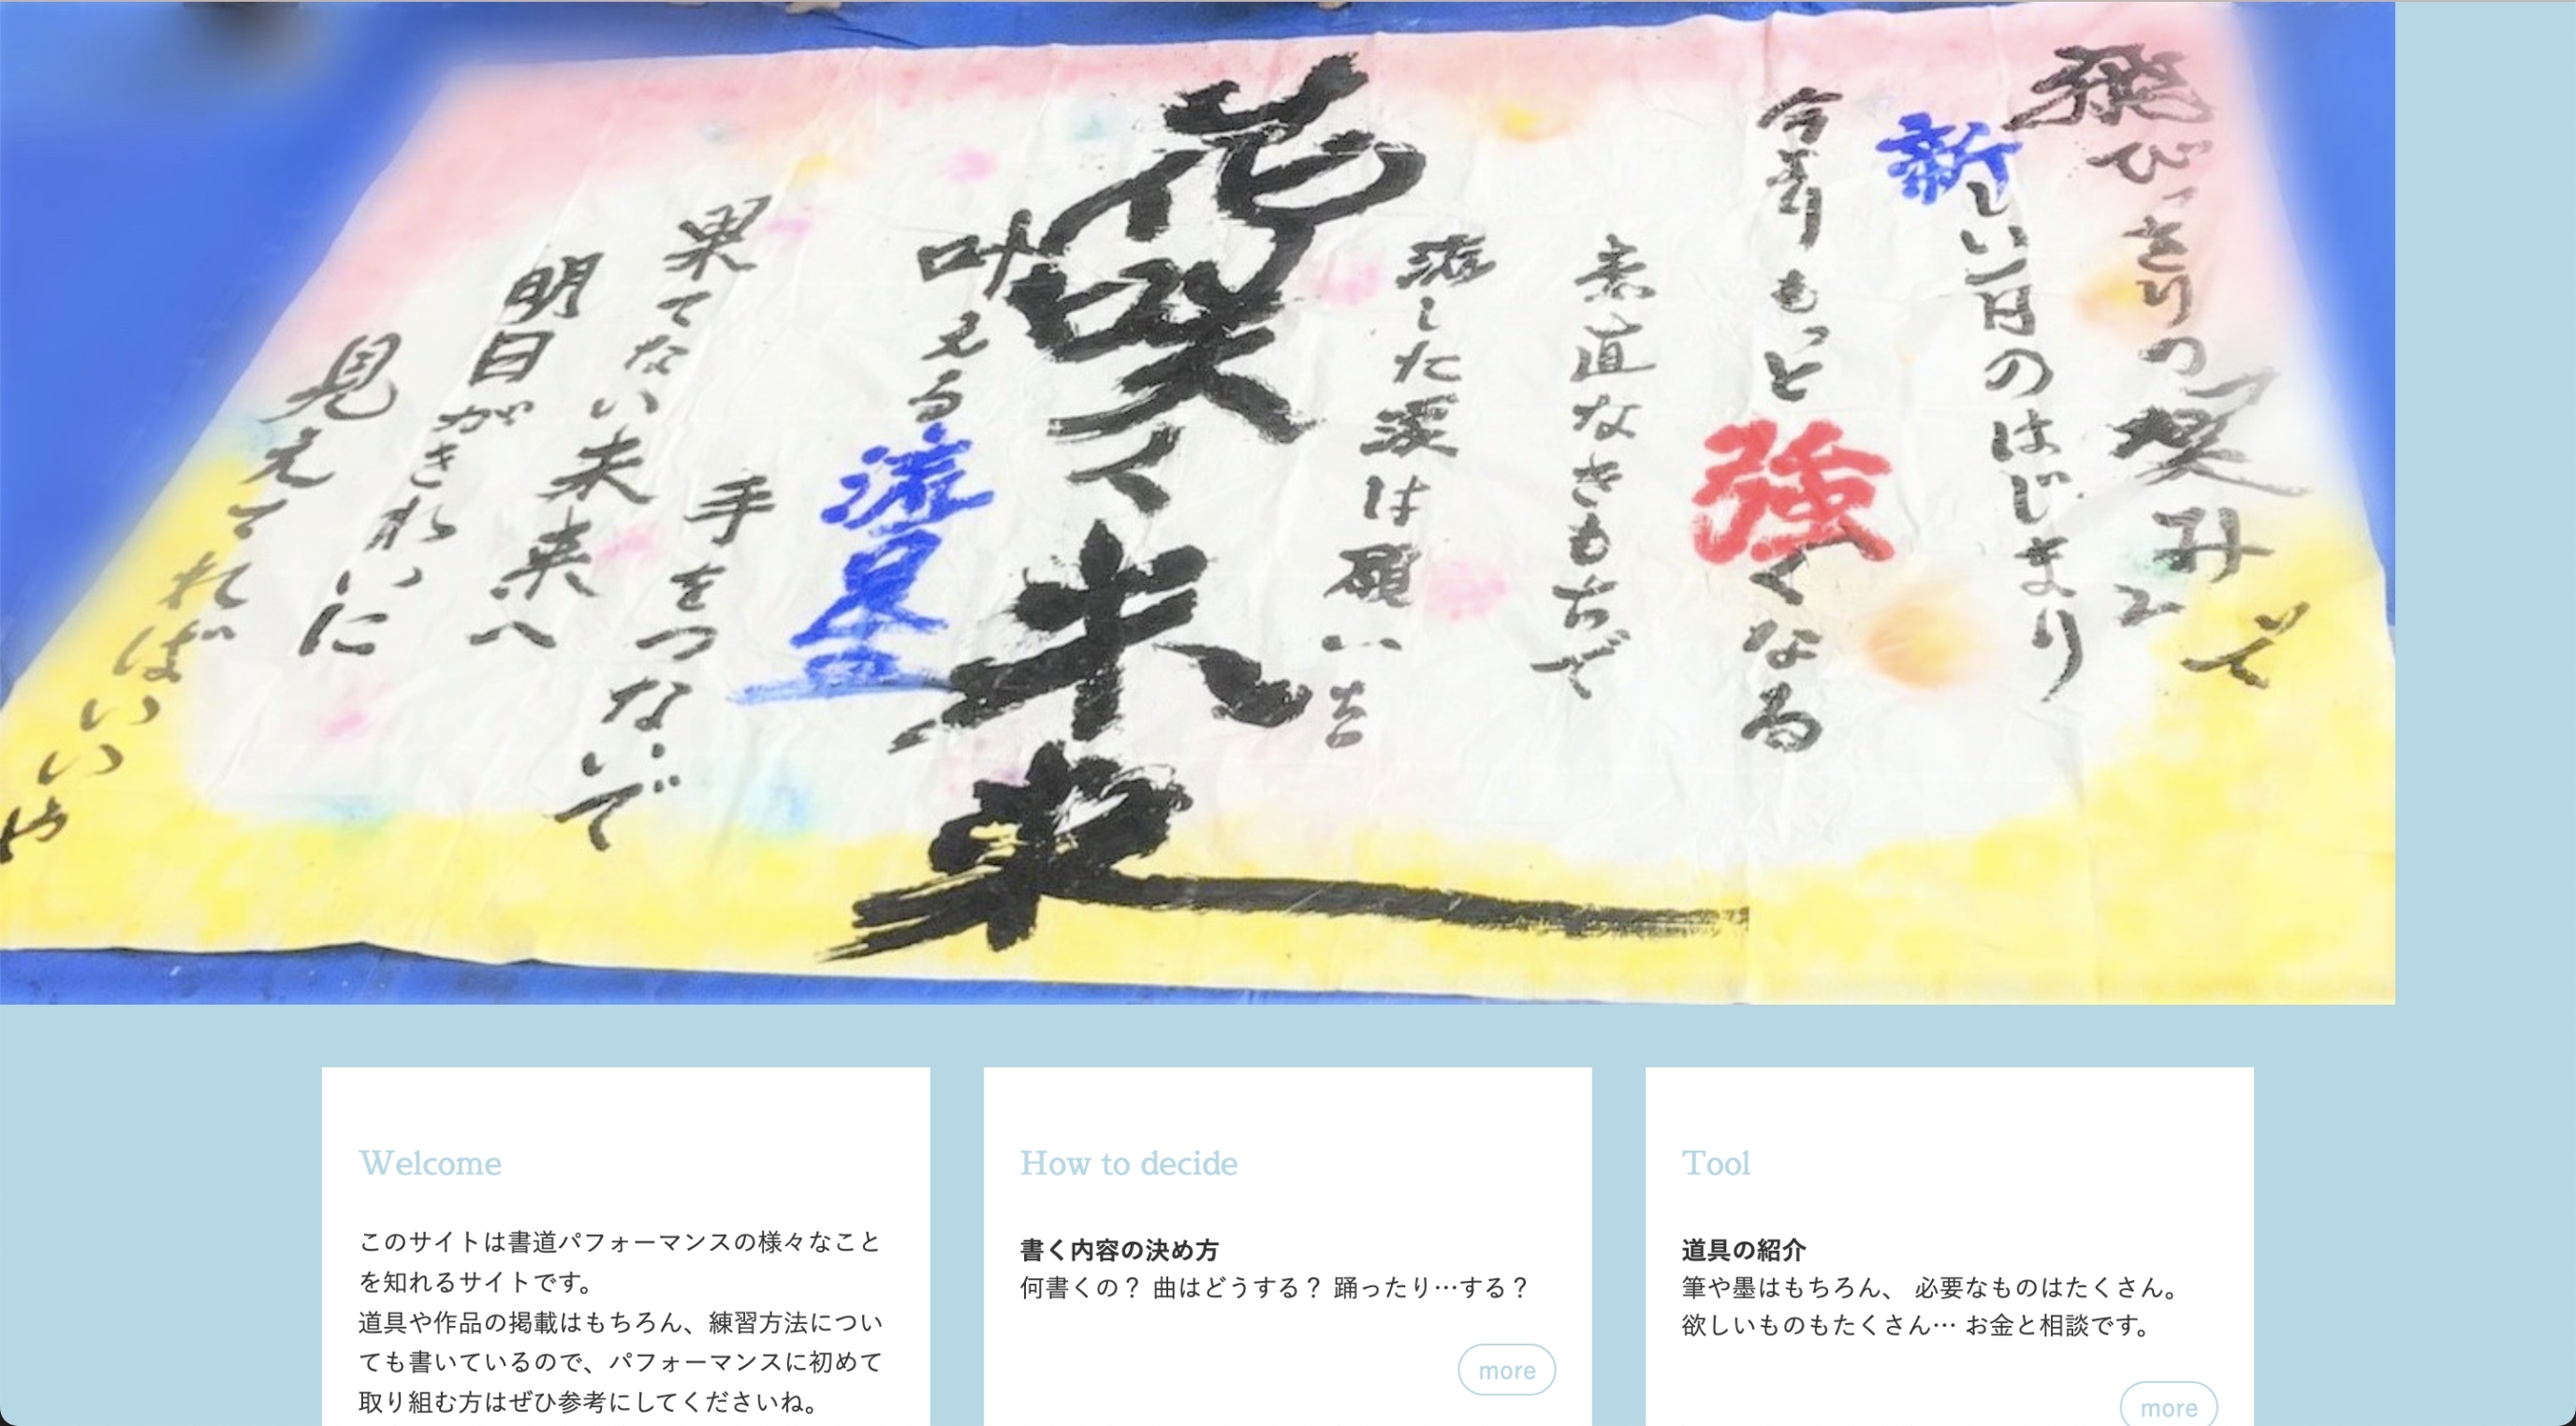 飛びっきりの笑みで
新しい一日のはじまり
今よりもっと強くなる
素直なきもちで
流した涙は願いを
花咲く未来
叶える流星
手をつないで
果てない未来へ
明日がきれいに
見えてればいいや
Welcome
このサイトは書道パフォーマンスの様々なこと
を知れるサイトです。
道具や作品の掲載はもちろん、練習方法につい
ても書いているので、パフォーマンスに初めて
取り組む方はぜひ参考にしてくださいね。
How to decide
書く内容の決め方
何書くの？ 曲はどうする？ 踊ったり…する？
more
Tool
道具の紹介
筆や墨はもちろん、 必要なものはたくさん。
欲しいものもたくさん… お金と相談です。
more